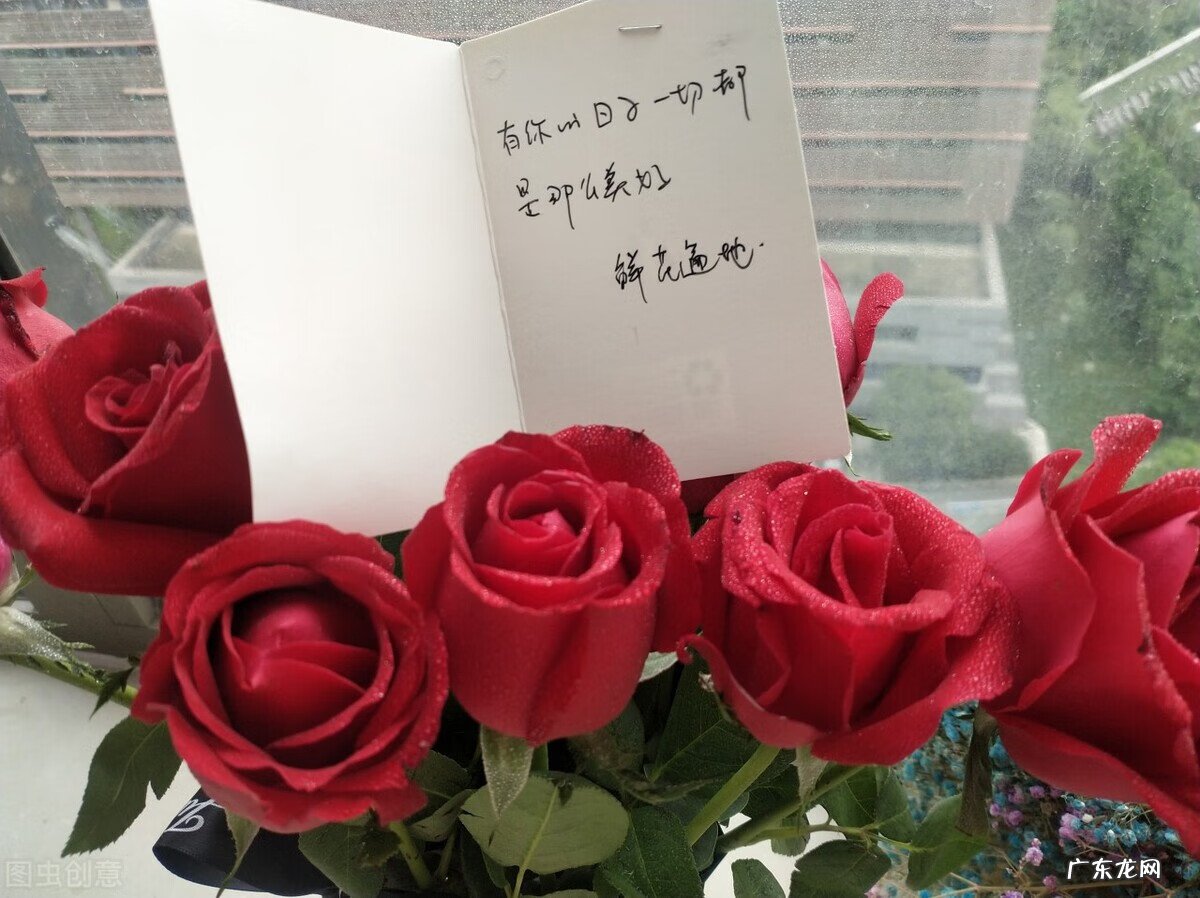 有你的日子一切都
是那么美好
鲜花遍地.
图虫创意
广东龙网